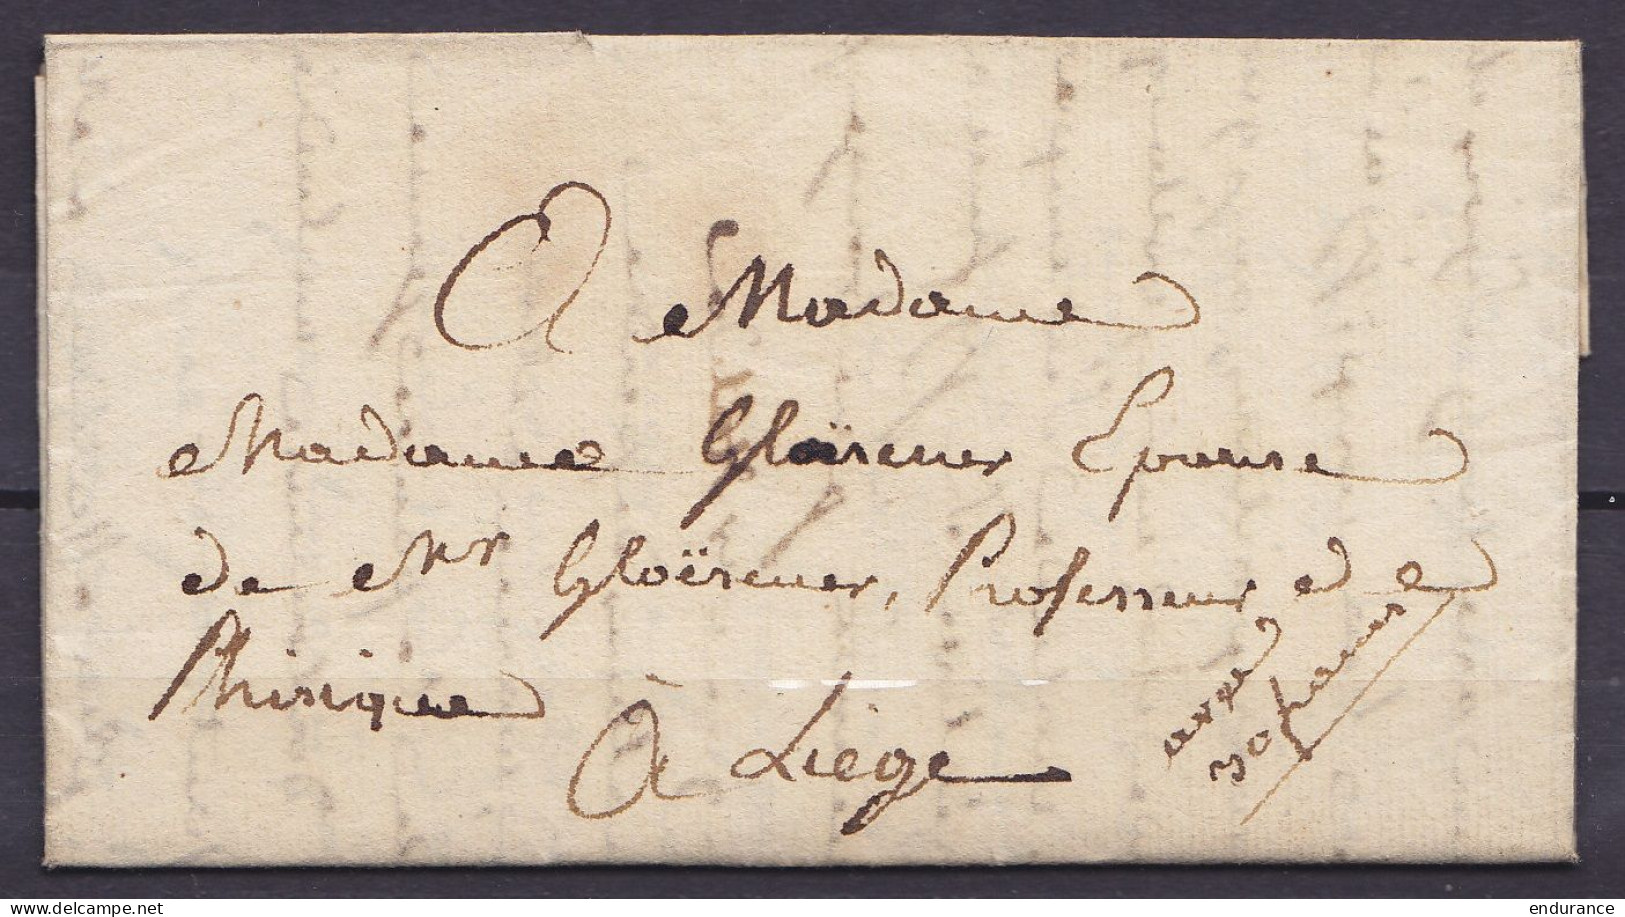 A Madame
Madame Gloësener Epouse
de Mr Gloësener, Professeur de
Phisique
À Liége
delcampe.net
endurance